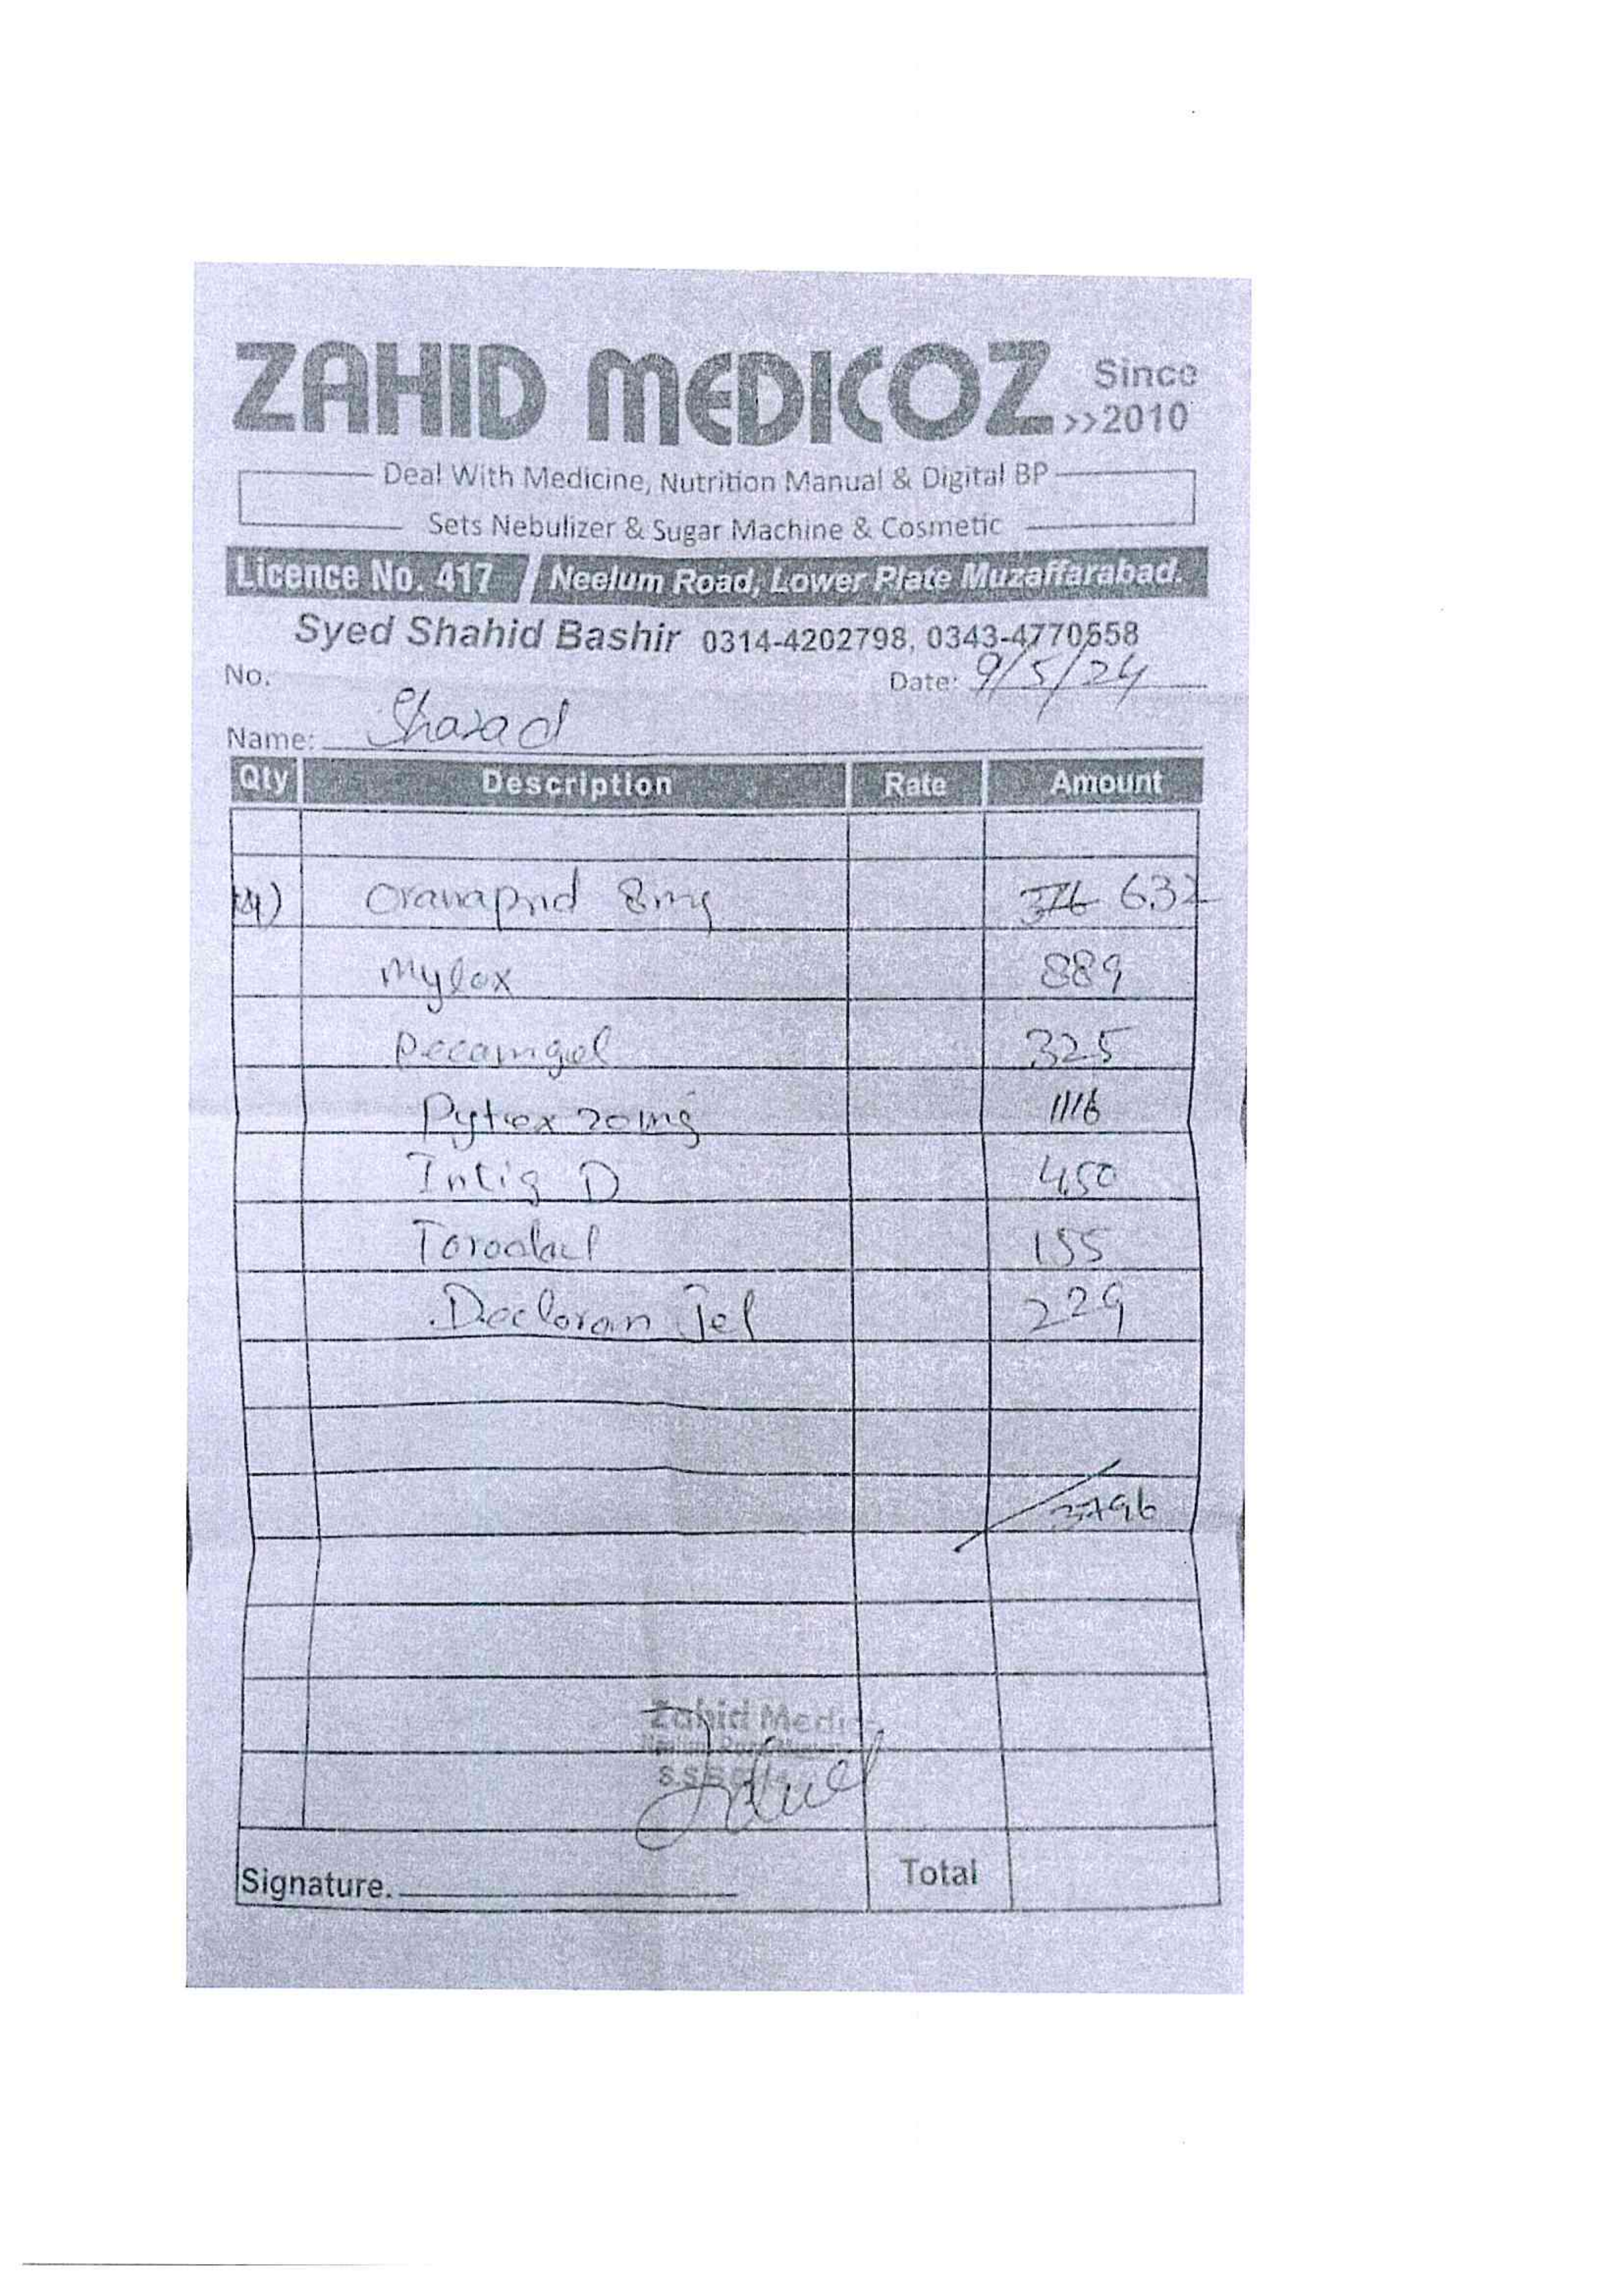 ZAHID MEDICOZ Since >>2010
Deal With Medicine, Nutrition Manual & Digital BP
Sets Nebulizer & Sugar Machine & Cosmetic
Licence No. 417 / Neelum Road, Lower Plate Muzaffarabad.
Syed Shahid Bashir 0314-4202798, 0343-4770558
No. Date: 9/5/24
Name:
Qty Description Rate Amount
8mg 632
Mylox 889
325
Pytrex 20mg 1116
Intig D 450
155
Decloran Jel 229
3796
Zahid Medi
Signature.
Total